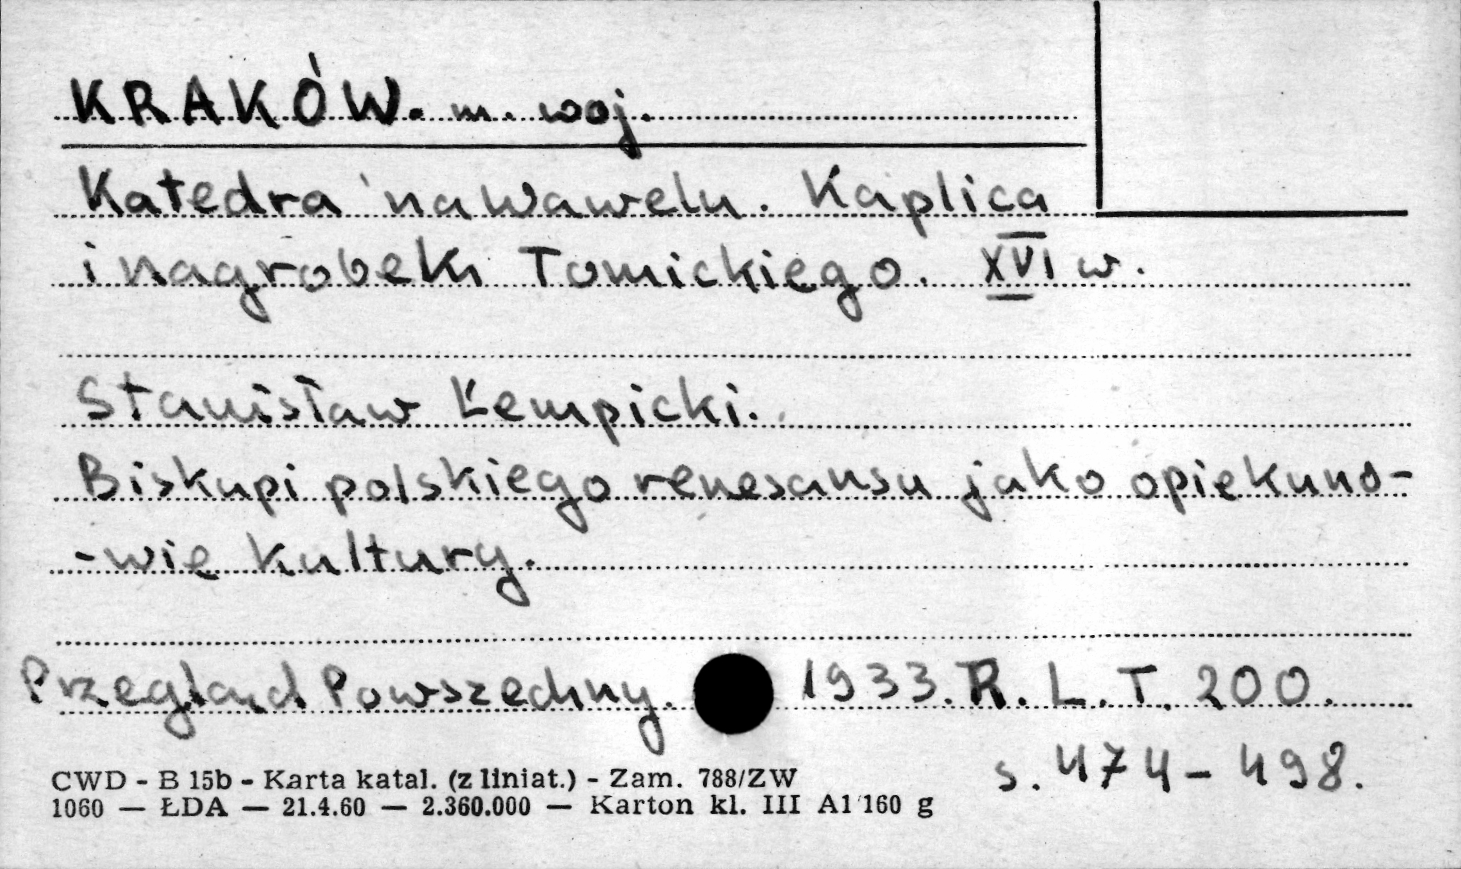 KRAKÓW. m. woj.
Katedra na Wawelu. Kaplica
i nagrobek Tomickiego. XVI w.
Stanisław Łempicki.
Biskupi polskiego renesansu jako opiekuno-
-wie kultury.
Przegląd Powszechny. 1933. R. L. T. 200.
s. 474-498.
CWD - B 15b - Karta katal. (z liniat.) - Zam. 788/ZW
1060 — ŁDA — 21.4.60 — 2.360.000 — Karton kl. III A1 160 g